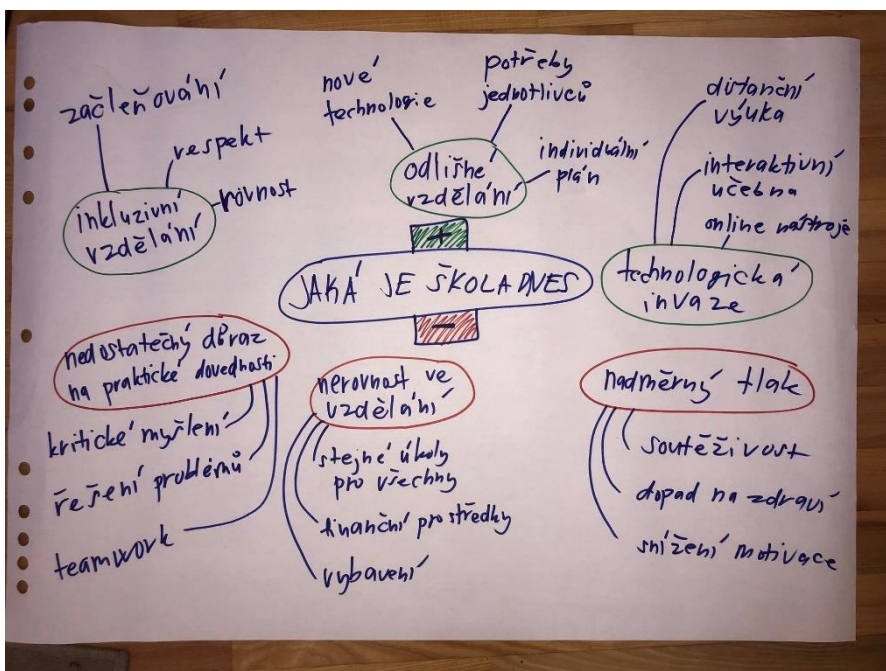 začleňování
respekt
rovnost
inkluzivní
vzdělání
nové
technologie
potřeby
jednotlivců
individuální
plán
odlišné
vzdělání
distanční
výuka
interaktivní
učebna
online nástroje
technologická
invaze
+
JAKÁ JE ŠKOLA DNES
–
nedostatečný důraz
na praktické dovednosti
kritické myšlení
řešení problémů
teamwork
nerovnost ve
vzdělání
stejné úkoly
pro všechny
finanční prostředky
vybavení
nadměrný tlak
soutěživost
dopad na zdraví
snížení motivace